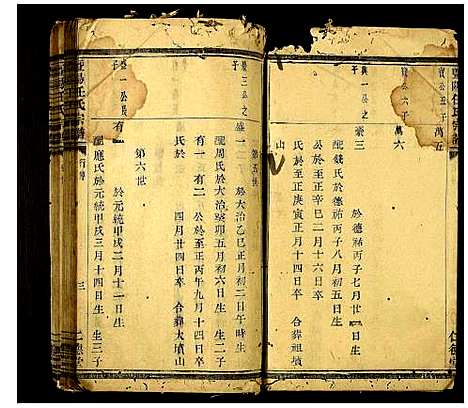 萬五
萬六
寶公六子
崇三 於德祐丙子七月廿一日生
配錢氏於德祐丙子八月初五日生
公於至正辛巳二月十六日卒
氏於至正庚寅正月十四日卒 合葬祖墳
山
第五世
崇三公之子
盛一 於大治乙巳正月初二日午時生
配周氏於大治癸卯五月初六日生 生二子
有一 有二 公於至正丙午九月十四日卒
氏於 四月廿四日卒 合葬大墳山
第六世
盛一公長子
有一 於元統甲戌二月十一日生
配應氏於元統甲戌三月十四日生 生三子
任氏宗譜 行傳 三